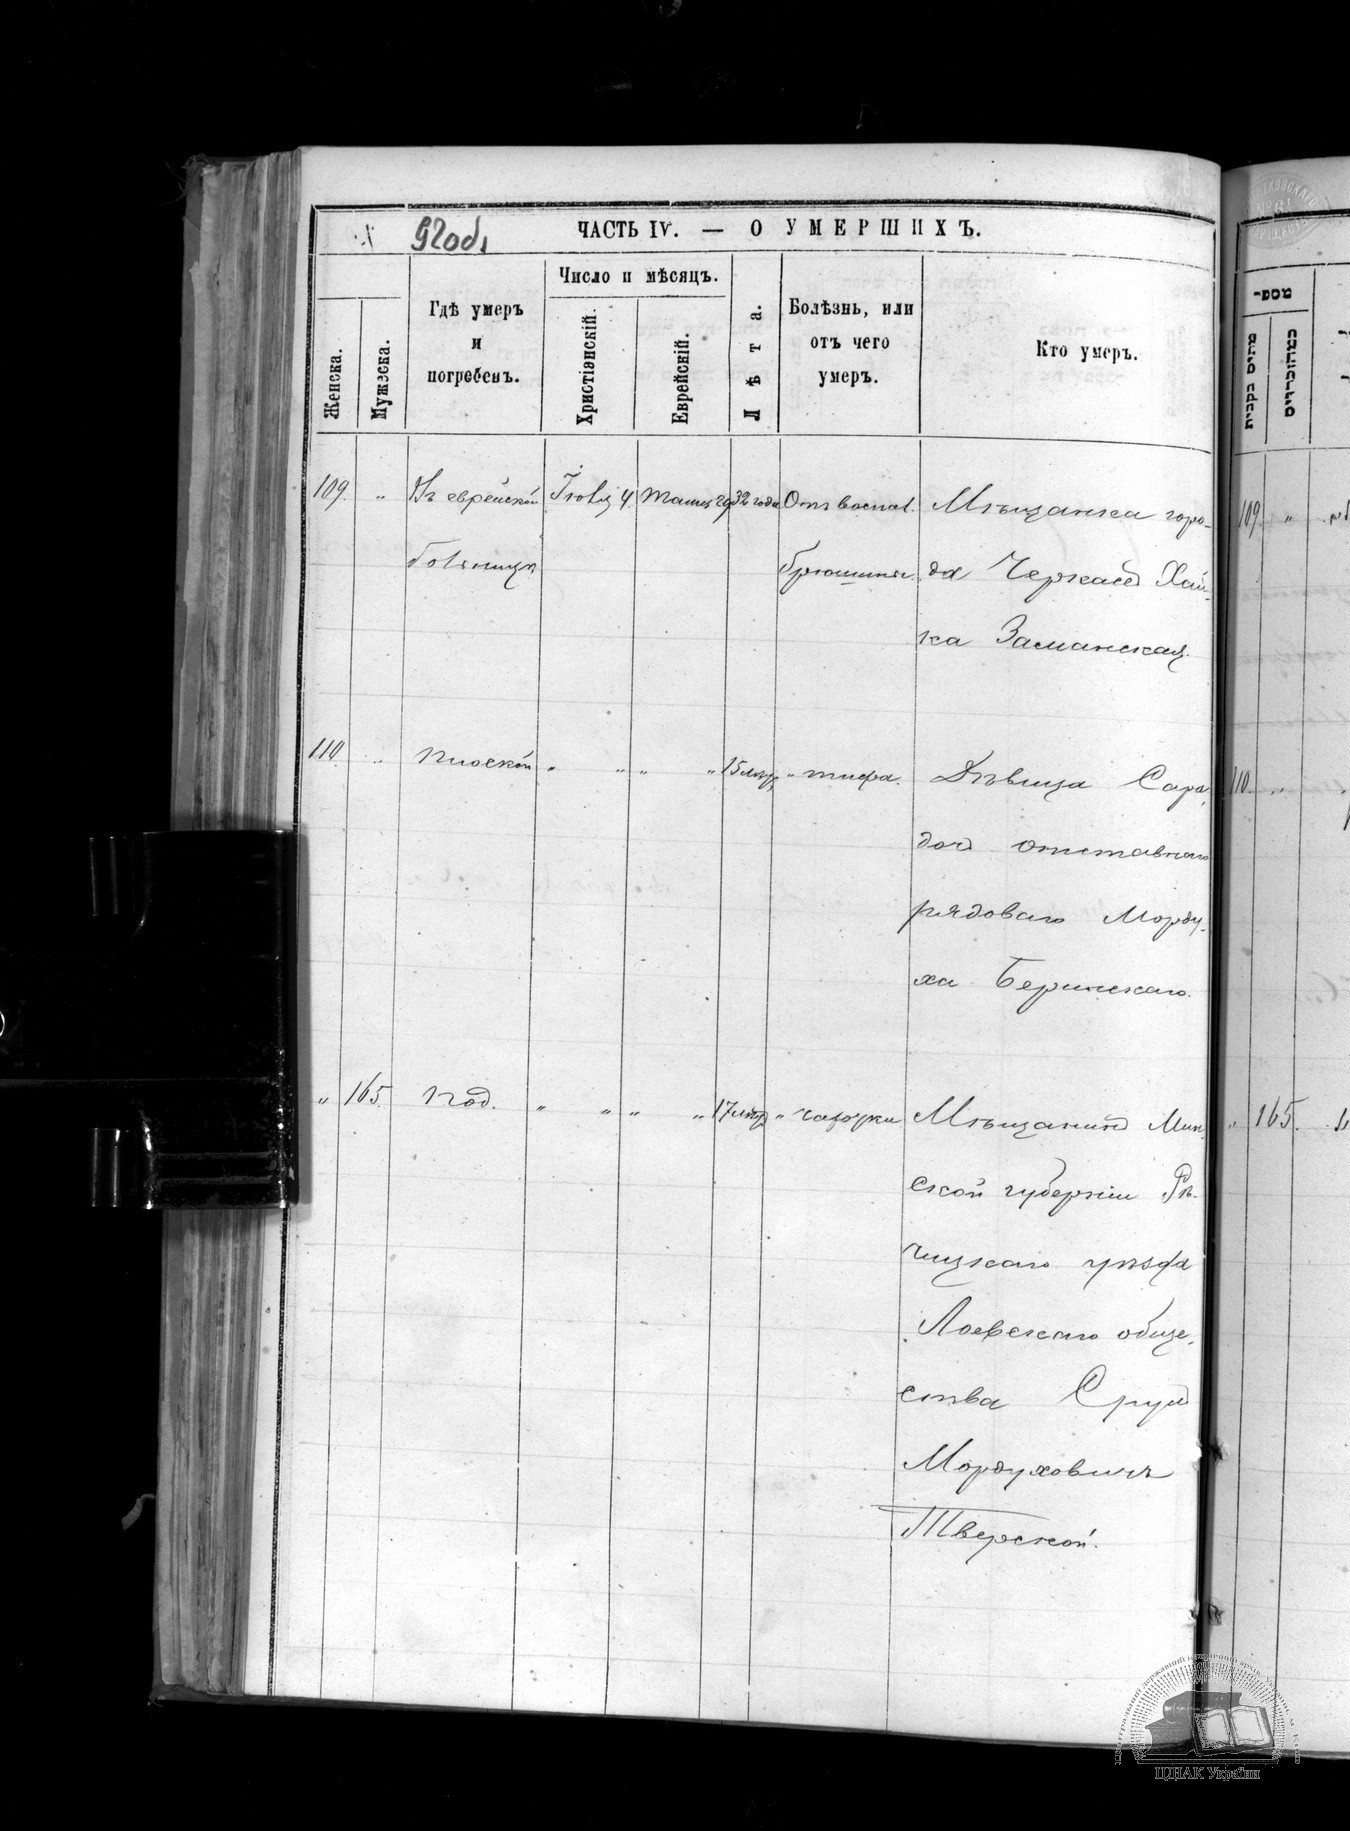 92об.
ЧАСТЬ IV. — О УМЕРШИХЪ.
Женска.
Мужеска.
Гдѣ умеръ
и
погребенъ.
Число и мѣсяцъ.
Христіэнскій.
Еврейскій.
Лѣта.
Болѣзнь, или
отъ чего
умеръ.
Кто умеръ.
109. " Въ еврейской Іюля 4. 32 года Отъ воспал. Мѣщанка горо-
больницѣ брюшины. да Черкасъ Хай-
ка Заманская.
110. " " " " " 15 лѣтъ " тифа. Дѣвица Сара,
дочь отставнаго
рядоваго Морду-
ха Беринскаго.
" 165. " " " " 17 лѣтъ " чахотки Мѣщанинъ Мин-
ской губерніи Рѣ-
чицкаго уѣзда
Лоевскаго обще-
ства Сруль
Мордуховичъ
Тверской.
מספר
מתים הקבית
המהזכרים
109. "
110. "
" 165.
ЦДІАК України